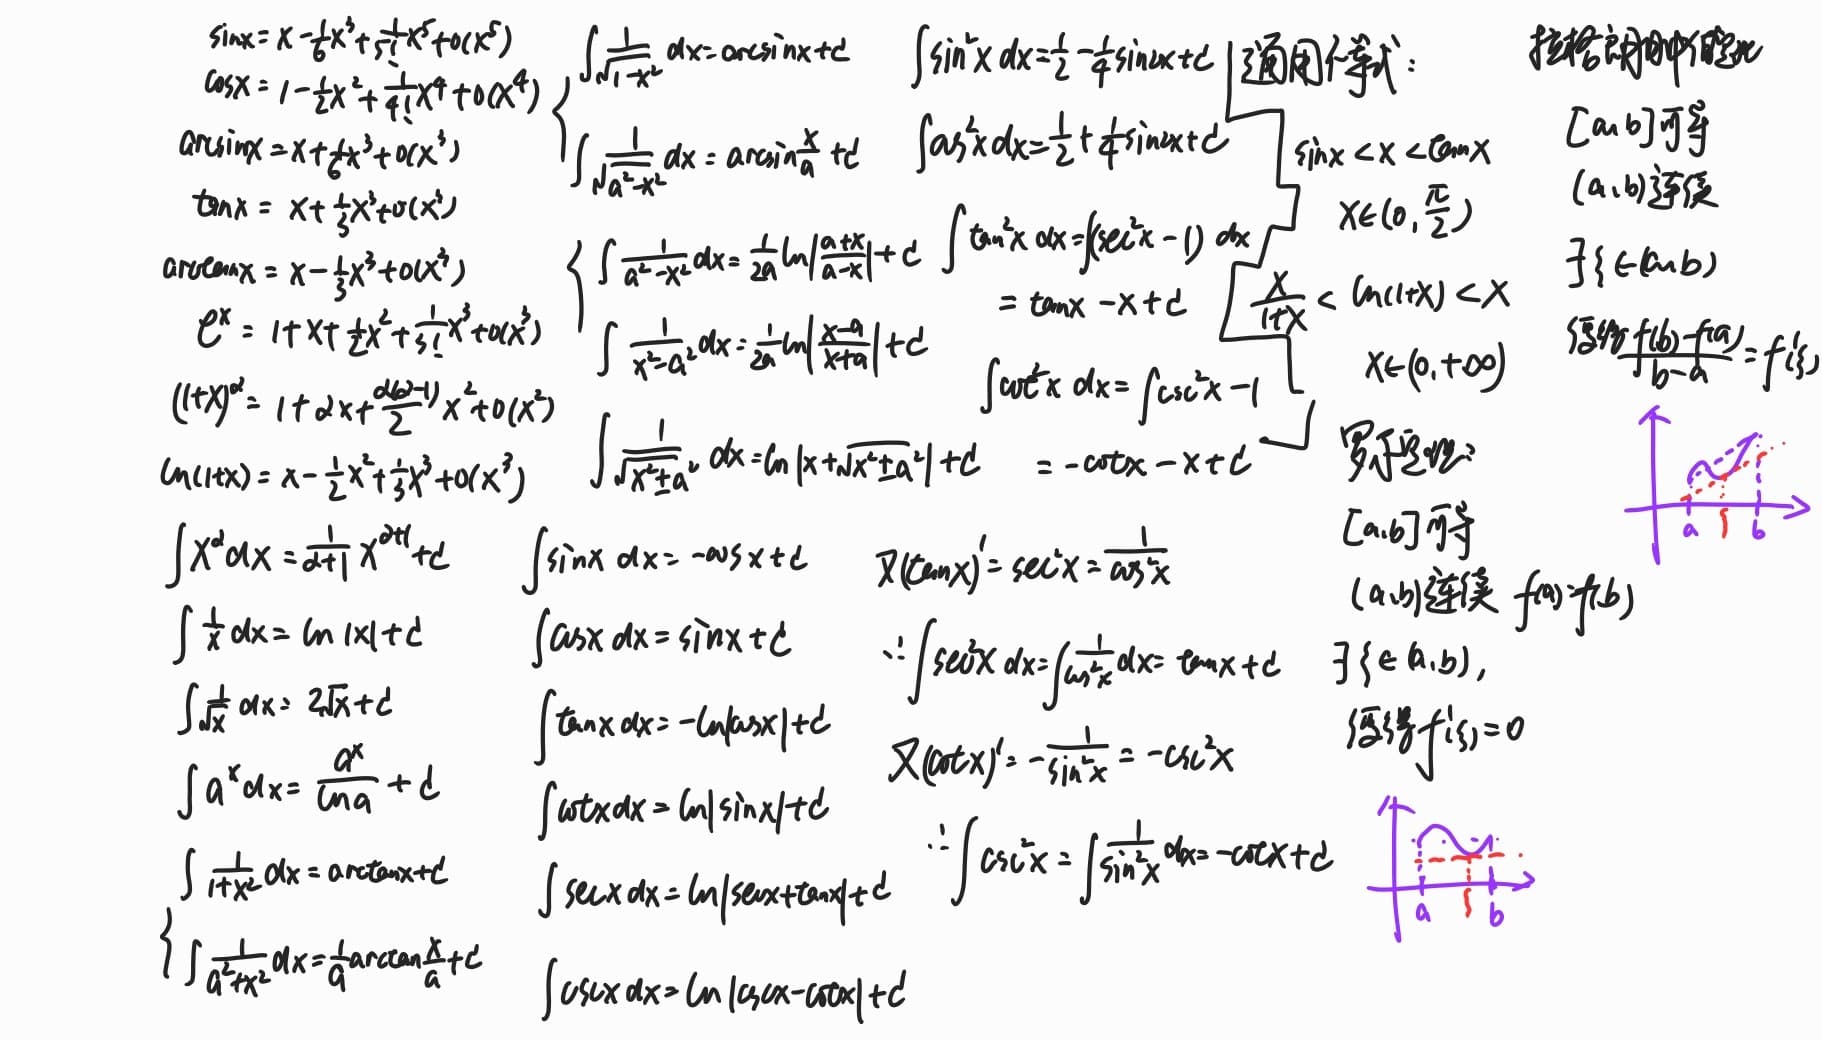 sinx = x - 1/6 x³ + 1/5! x⁵ + o(x⁵)
cosx = 1 - 1/2 x² + 1/4! x⁴ + o(x⁴)
arcsinx = x + 1/6 x³ + o(x³)
tanx = x + 1/3 x³ + o(x³)
arctanx = x - 1/3 x³ + o(x³)
eˣ = 1 + x + 1/2 x² + 1/3! x³ + o(x³)
(1+x)^α = 1 + αx + α(α-1)/2 x² + o(x²)
ln(1+x) = x - 1/2 x² + 1/3 x³ + o(x³)
∫ x^α dx = 1/(α+1) x^(α+1) + C
∫ 1/x dx = ln|x| + C
∫ 1/√x dx = 2√x + C
∫ aˣ dx = aˣ/lna + C
∫ 1/(1+x²) dx = arctanx + C
∫ 1/(a²+x²) dx = 1/a arctan x/a + C
∫ 1/√(1-x²) dx = arcsinx + C
∫ 1/√(a²-x²) dx = arcsin x/a + C
∫ 1/(a²-x²) dx = 1/2a ln|(a+x)/(a-x)| + C
∫ 1/(x²-a²) dx = 1/2a ln|(x-a)/(x+a)| + C
∫ 1/√(x²±a²) dx = ln|x+√(x²±a²)| + C
∫ sinx dx = -cosx + C
∫ cosx dx = sinx + C
∫ tanx dx = -ln|cosx| + C
∫ cotx dx = ln|sinx| + C
∫ secx dx = ln|secx+tanx| + C
∫ cscx dx = ln|cscx-cotx| + C
∫ sin²x dx = 1/2 - 1/4 sin2x + C
∫ cos²x dx = 1/2 + 1/4 sin2x + C
∫ tan²x dx = ∫(sec²x - 1) dx
= tanx - x + C
∫ cot²x dx = ∫ csc²x - 1
= -cotx - x + C
又(tanx)' = sec²x = 1/cos²x
∴ ∫ sec²x dx = ∫ 1/cos²x dx = tanx + C
又(cotx)' = -1/sin²x = -csc²x
∴ ∫ csc²x = ∫ 1/sin²x dx = -cotx + C
sinx < x < tanx
x∈(0, π/2)
x/(1+x) < ln(1+x) < x
x∈(0, +∞)
罗尔定理:
[a.b]可导
(a.b)连续 f(a)=f(b)
∃ξ∈(a.b),
使得f'(ξ)=0
a ξ b
[a.b]可导
(a.b)连续
∃ξ∈(a.b)
使得 (f(b)-f(a))/(b-a) = f'(ξ)
a ξ b